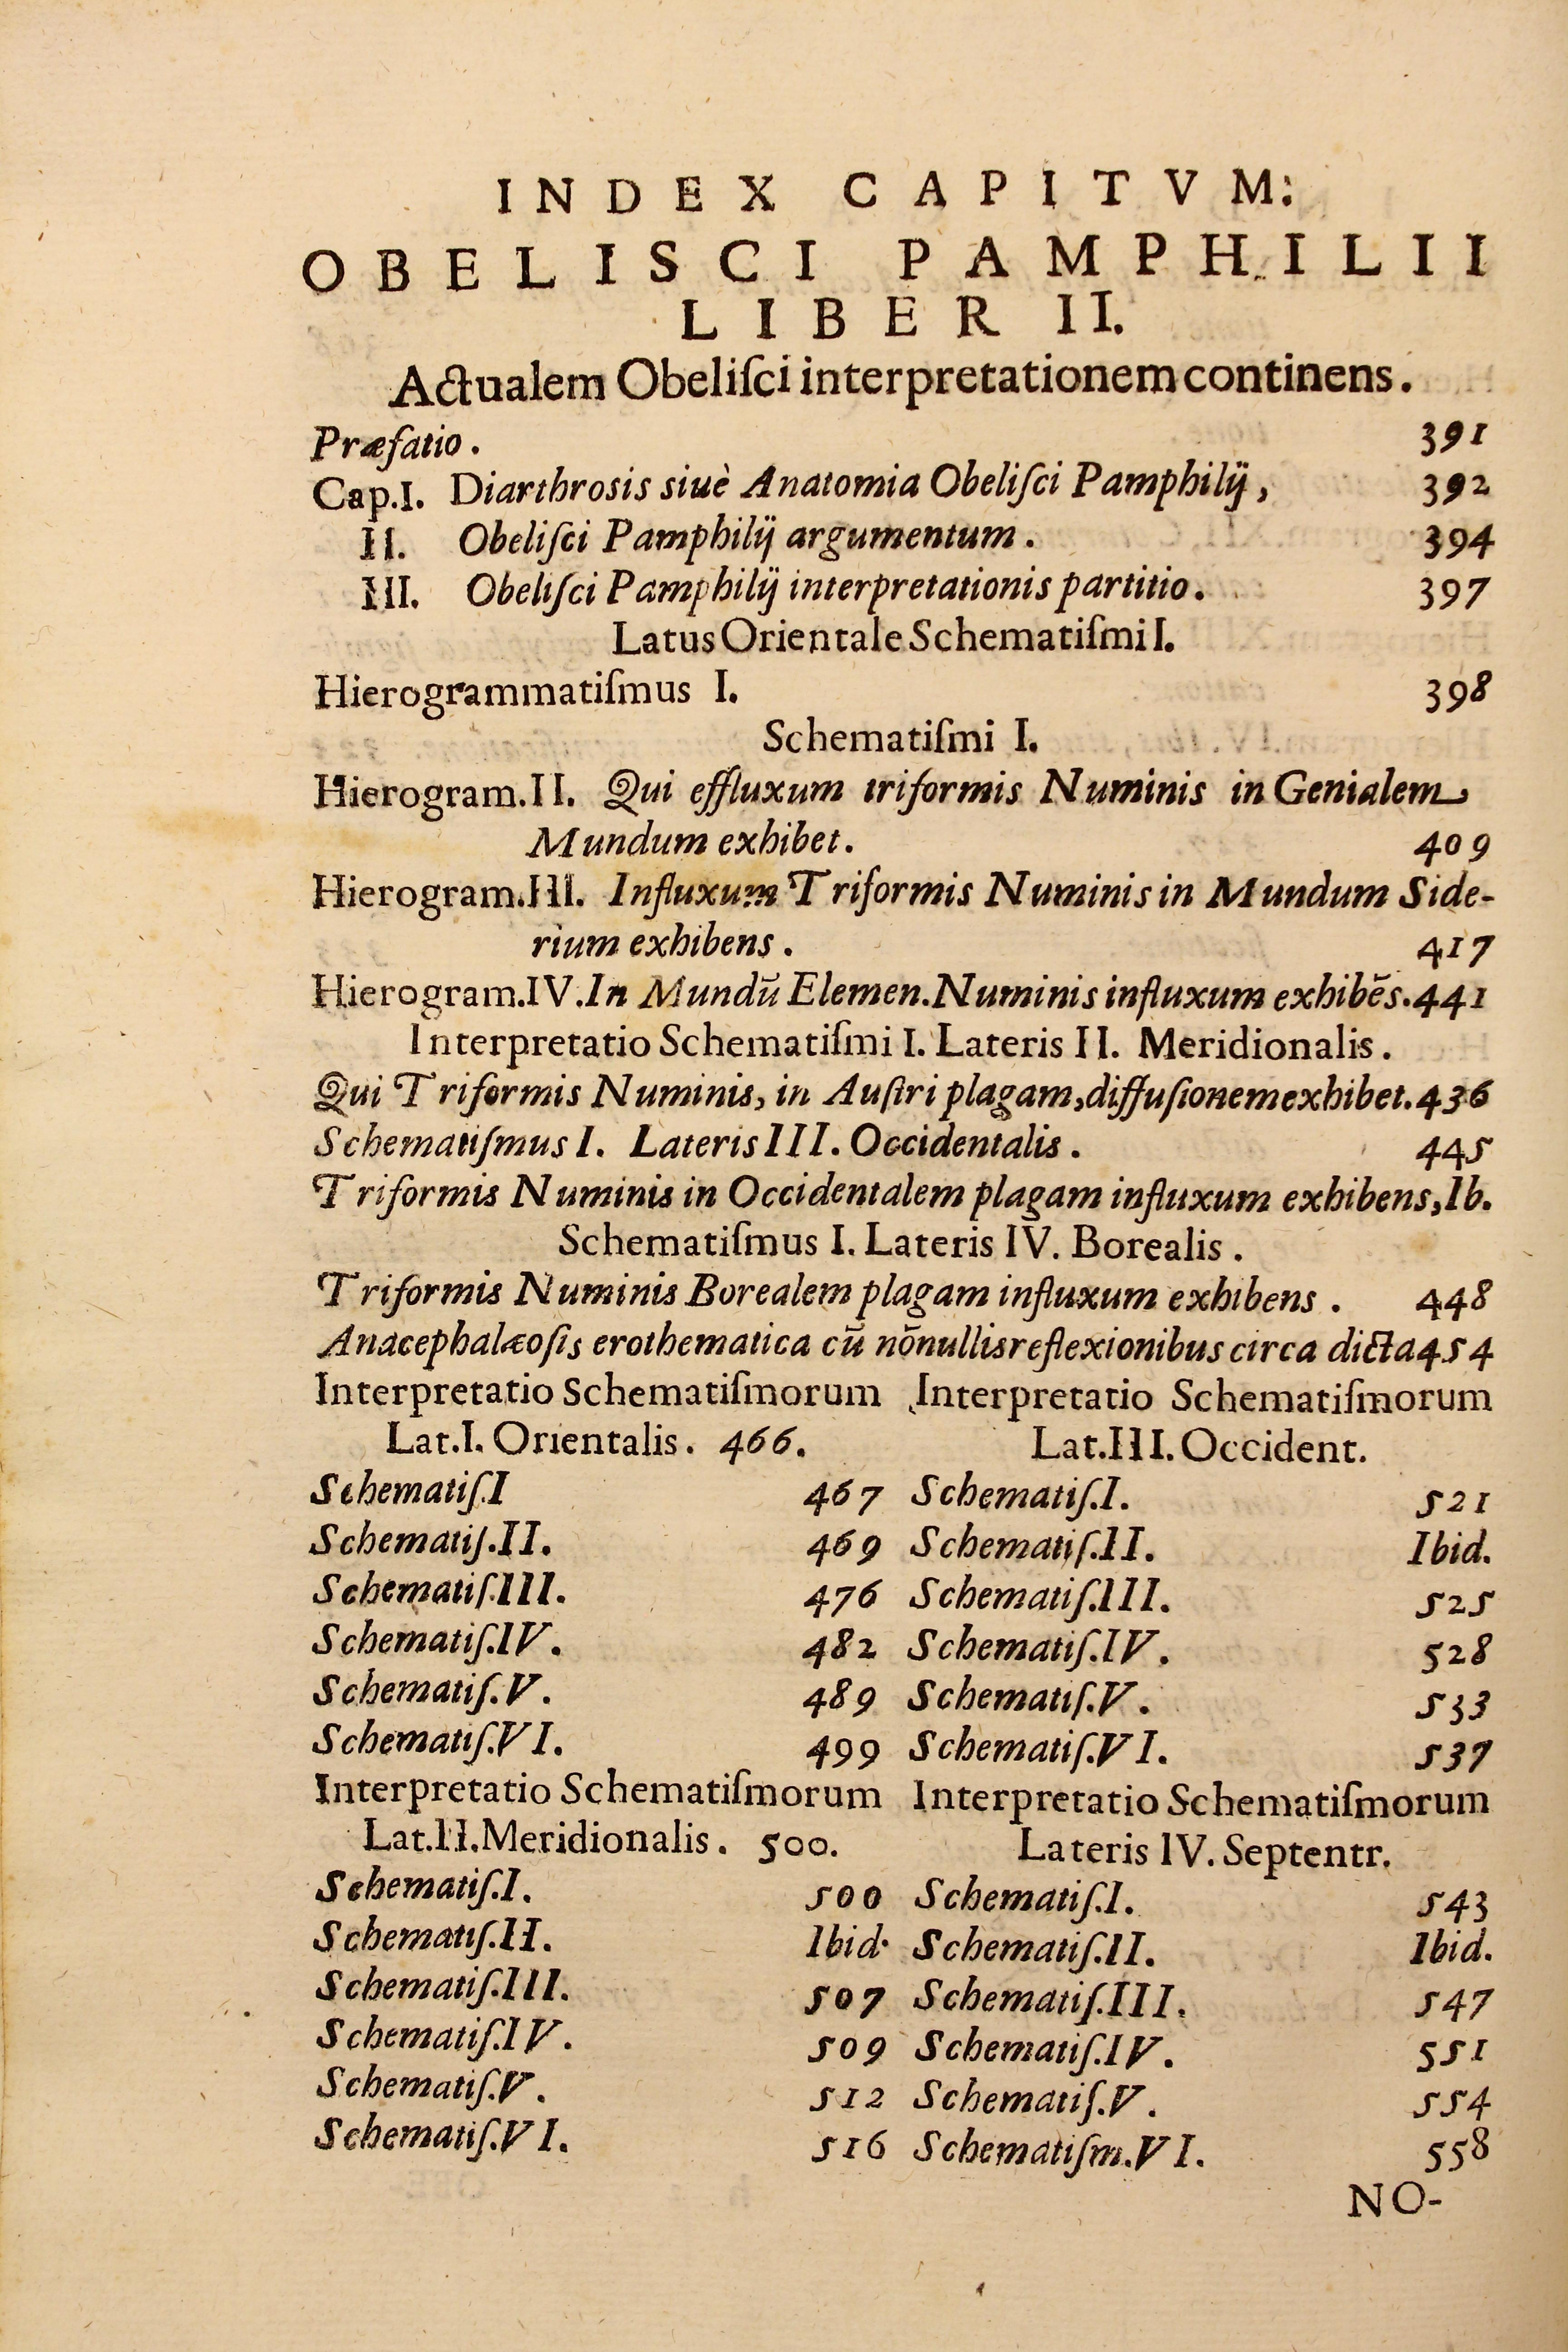 INDEX CAPITVM:
OBELISCI PAMPHILII
LIBER II.
Actualem Obeliſci interpretationem continens.
Præfatio. 391
Cap.I. Diarthrosis siuè Anatomia Obeliſci Pamphilij, 392
II. Obeliſci Pamphilij argumentum. 394
III. Obeliſci Pamphilij interpretationis partitio. 397
Latus Orientale Schematiſmi I.
Hierogrammatiſmus I. 398
Schematiſmi I.
Hierogram.II. Qui effluxum triformis Numinis in Genialem
Mundum exhibet. 409
Hierogram.III. Influxum Triformis Numinis in Mundum Side-
rium exhibens. 417
Hierogram.IV. In Mundū Elemen. Numinis influxum exhibēs. 441
Interpretatio Schematiſmi I. Lateris II. Meridionalis.
Qui Triformis Numinis, in Auſtri plagam, diffuſionem exhibet. 436
Schematiſmus I. Lateris III. Occidentalis. 445
Triformis Numinis in Occidentalem plagam influxum exhibens, Ib.
Schematiſmus I. Lateris IV. Borealis.
Triformis Numinis Borealem plagam influxum exhibens. 448
Anacephalæoſis erothematica cū nōnullis reflexionibus circa dicta 454
Interpretatio Schematiſmorum
Lat.I. Orientalis. 466.
Schematiſ.I 467
Schematiſ.II. 469
Schematiſ.III. 476
Schematiſ.IV. 482
Schematiſ.V. 489
Schematiſ.VI. 499
Interpretatio Schematiſmorum
Lat.II.Meridionalis. 500.
Schematiſ.I. 500
Schematiſ.II. Ibid.
Schematiſ.III. 507
Schematiſ.IV. 509
Schematiſ.V. 512
Schematiſ.VI. 516
Interpretatio Schematiſmorum
Lat.III.Occident.
Schematiſ.I. 521
Schematiſ.II. Ibid.
Schematiſ.III. 525
Schematiſ.IV. 528
Schematiſ.V. 533
Schematiſ.VI. 537
Interpretatio Schematiſmorum
Lateris IV. Septentr.
Schematiſ.I. 543
Schematiſ.II. Ibid.
Schematiſ.III. 547
Schematiſ.IV. 551
Schematiſ.V. 554
Schematiſm.VI. 558
NO-